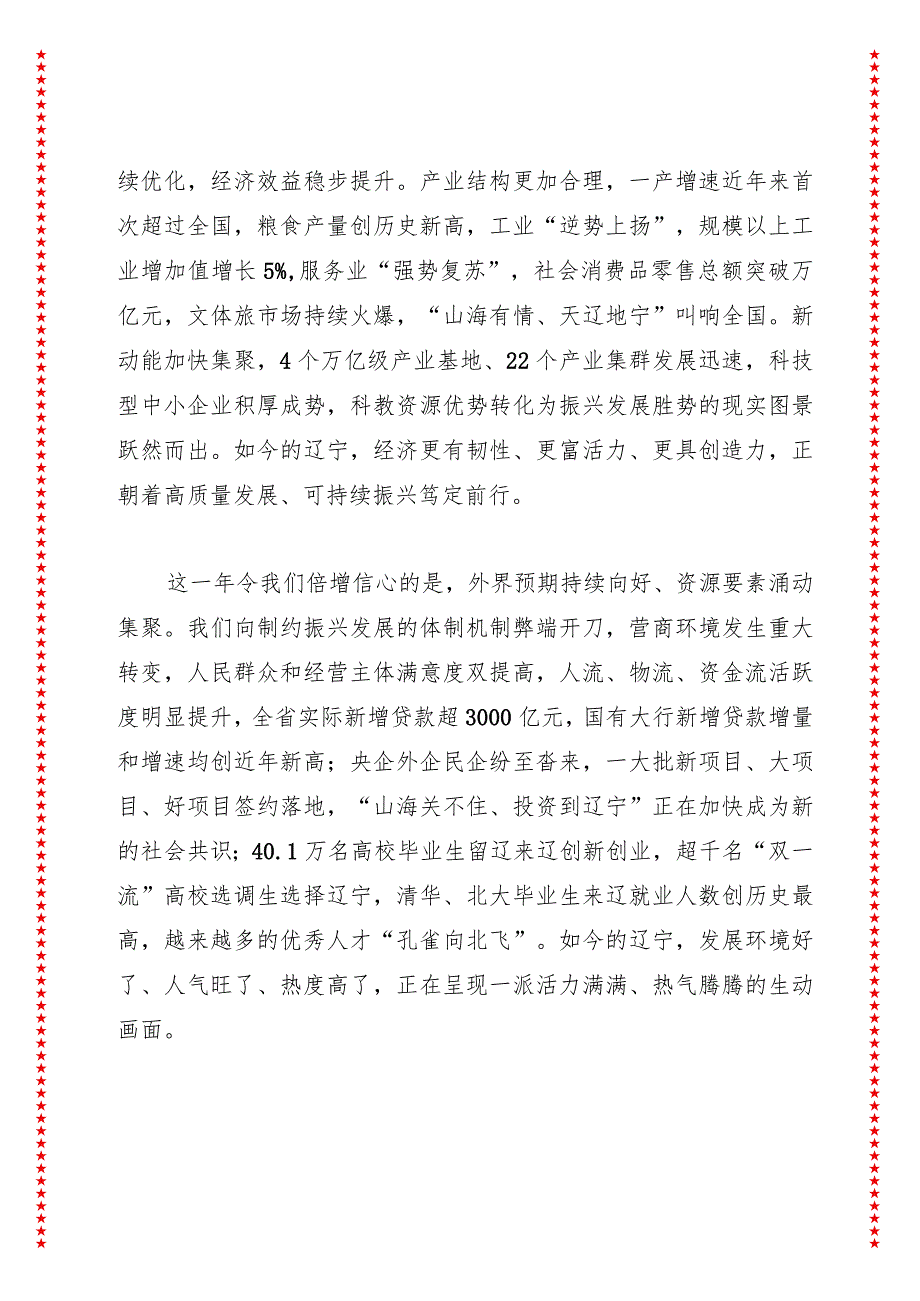 续优化，经济效益稳步提升。产业结构更加合理，一产增速近年来首
次超过全国，粮食产量创历史新高，工业“逆势上扬”，规模以上工
业增加值增长 5%,服务业“强势复苏”，社会消费品零售总额突破万
亿元，文体旅市场持续火爆，“山海有情、天辽地宁”叫响全国。新
动能加快集聚，4 个万亿级产业基地、22 个产业集群发展迅速，科技
型中小企业积厚成势，科教资源优势转化为振兴发展胜势的现实图景
跃然而出。如今的辽宁，经济更有韧性、更富活力、更具创造力，正
朝着高质量发展、可持续振兴笃定前行。
这一年令我们倍增信心的是，外界预期持续向好、资源要素涌动
集聚。我们向制约振兴发展的体制机制弊端开刀，营商环境发生重大
转变，人民群众和经营主体满意度双提高，人流、物流、资金流活跃
度明显提升，全省实际新增贷款超 3000 亿元，国有大行新增贷款增量
和增速均创近年新高；央企外企民企纷至沓来，一大批新项目、大项
目、好项目签约落地，“山海关不住、投资到辽宁”正在加快成为新
的社会共识；40.1 万名高校毕业生留辽来辽创新创业，超千名“双一
流”高校选调生选择辽宁，清华、北大毕业生来辽就业人数创历史最
高，越来越多的优秀人才“孔雀向北飞”。如今的辽宁，发展环境好
了、人气旺了、热度高了，正在呈现一派活力满满、热气腾腾的生动
画面。